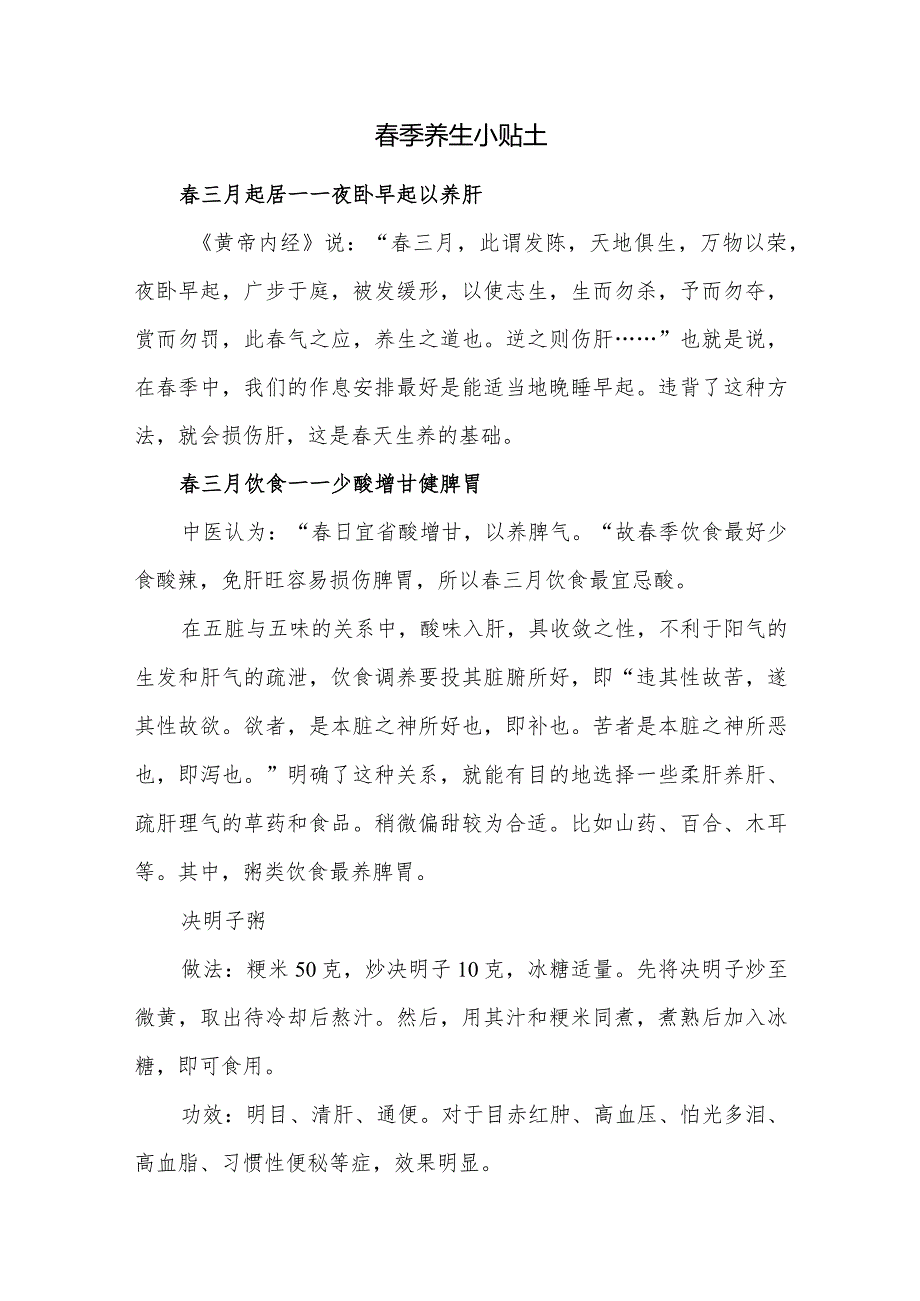 春季养生小贴土
春三月起居一一夜卧早起以养肝
《黄帝内经》说：“春三月，此谓发陈，天地俱生，万物以荣，
夜卧早起，广步于庭，被发缓形，以使志生，生而勿杀，予而勿夺，
赏而勿罚，此春气之应，养生之道也。逆之则伤肝……”也就是说，
在春季中，我们的作息安排最好是能适当地晚睡早起。违背了这种方
法，就会损伤肝，这是春天生养的基础。
春三月饮食一一少酸增甘健脾胃
中医认为：“春日宜省酸增甘，以养脾气。“故春季饮食最好少
食酸辣，免肝旺容易损伤脾胃，所以春三月饮食最宜忌酸。
在五脏与五味的关系中，酸味入肝，具收敛之性，不利于阳气的
生发和肝气的疏泄，饮食调养要投其脏腑所好，即“违其性故苦，遂
其性故欲。欲者，是本脏之神所好也，即补也。苦者是本脏之神所恶
也，即泻也。”明确了这种关系，就能有目的地选择一些柔肝养肝、
疏肝理气的草药和食品。稍微偏甜较为合适。比如山药、百合、木耳
等。其中，粥类饮食最养脾胃。
决明子粥
做法：粳米50克，炒决明子10克，冰糖适量。先将决明子炒至
微黄，取出待冷却后熬汁。然后，用其汁和粳米同煮，煮熟后加入冰
糖，即可食用。
功效：明目、清肝、通便。对于目赤红肿、高血压、怕光多泪、
高血脂、习惯性便秘等症，效果明显。